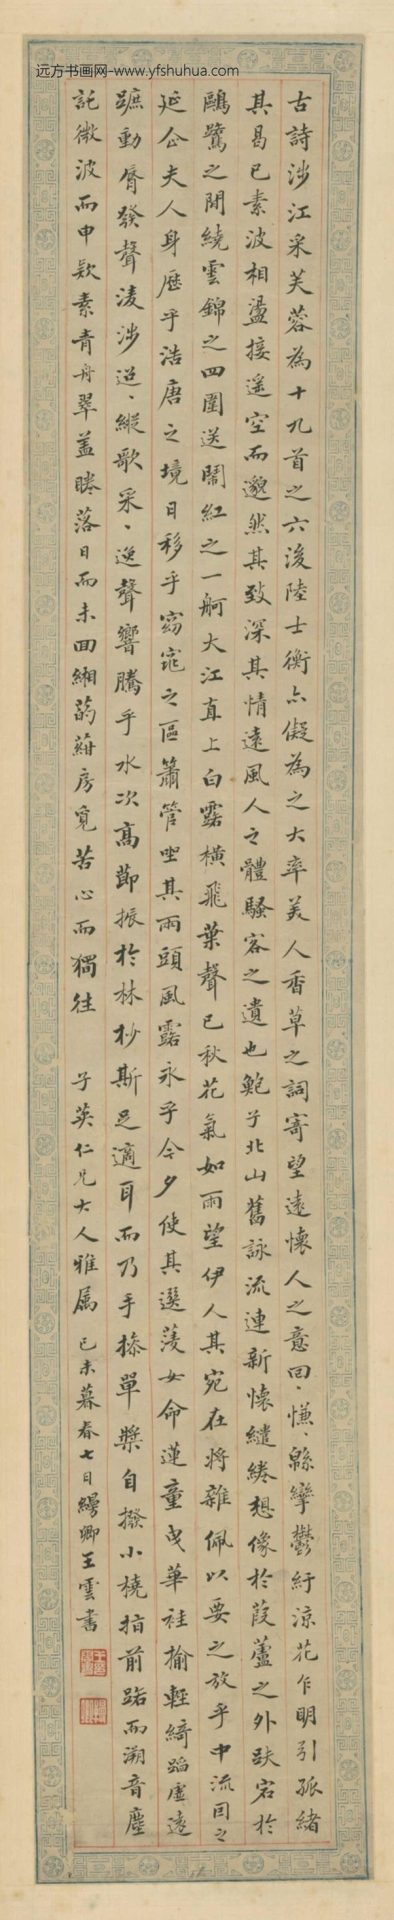 远方书画网-www.yfshuhua.com
古詩涉江采芙蓉為十九首之六後陸士衡亦儗為之大率美人香草之詞寄望遠懷人之意回〻慊〻緜攣鬱紆涼花乍明引孤緒
其曷已素波相盪接遥空而邈然其致深其情遠風人之體騷客之遺也鮑子北山舊詠流連新懷繾綣想像於葭蘆之外趺宕於
鷗鷺之閒繞雲錦之四圍送鬧紅之一舸大江直上白露橫飛葉聲已秋花氣如雨望伊人其宛在將雜佩以要之放乎中流回之
延企夫人身歷乎浩唐之境日移乎窈窕之區簫管坐其兩頭風露永乎今夕使其選蔆女命蓮童曳華袿揄輕綺蹈虛遠
蹠動脣發聲淩涉迢〻縱歌采〻逸聲響騰乎水次高節振於林杪斯足適耳而乃手搽單槳自撥小橈指前路而溯音塵
託微波而申款素青舟翠蓋睠落日而未回緗菂葤房覓苦心而獨往 子英仁兄大人雅属 已未暮春七日縵卿王雲書